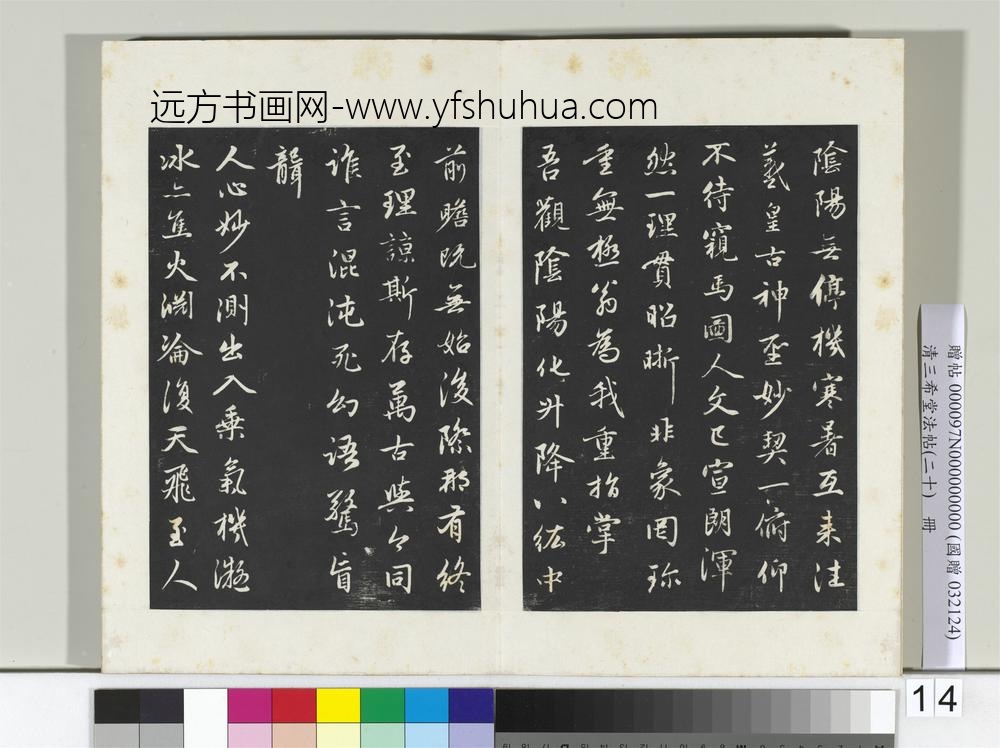 远方书画网-www.yfshuhua.com
陰陽无停機寒暑互来往
羲皇古神聖妙契一俯仰
不待窺馬圖人文已宣朗渾
然一理貫昭晰非象罔珍
重無極翁為我重指掌
吾觀陰陽化升降八紘中
前瞻既无始後際那有終
至理諒斯存萬古與今同
誰言混沌死幻語驚盲
聾
人心妙不測出入乗氣機凝
冰亦焦火淵淪復天飛至人
贈帖 000097N000000000 (國贈 032124)
清三希堂法帖(二十) 冊
14